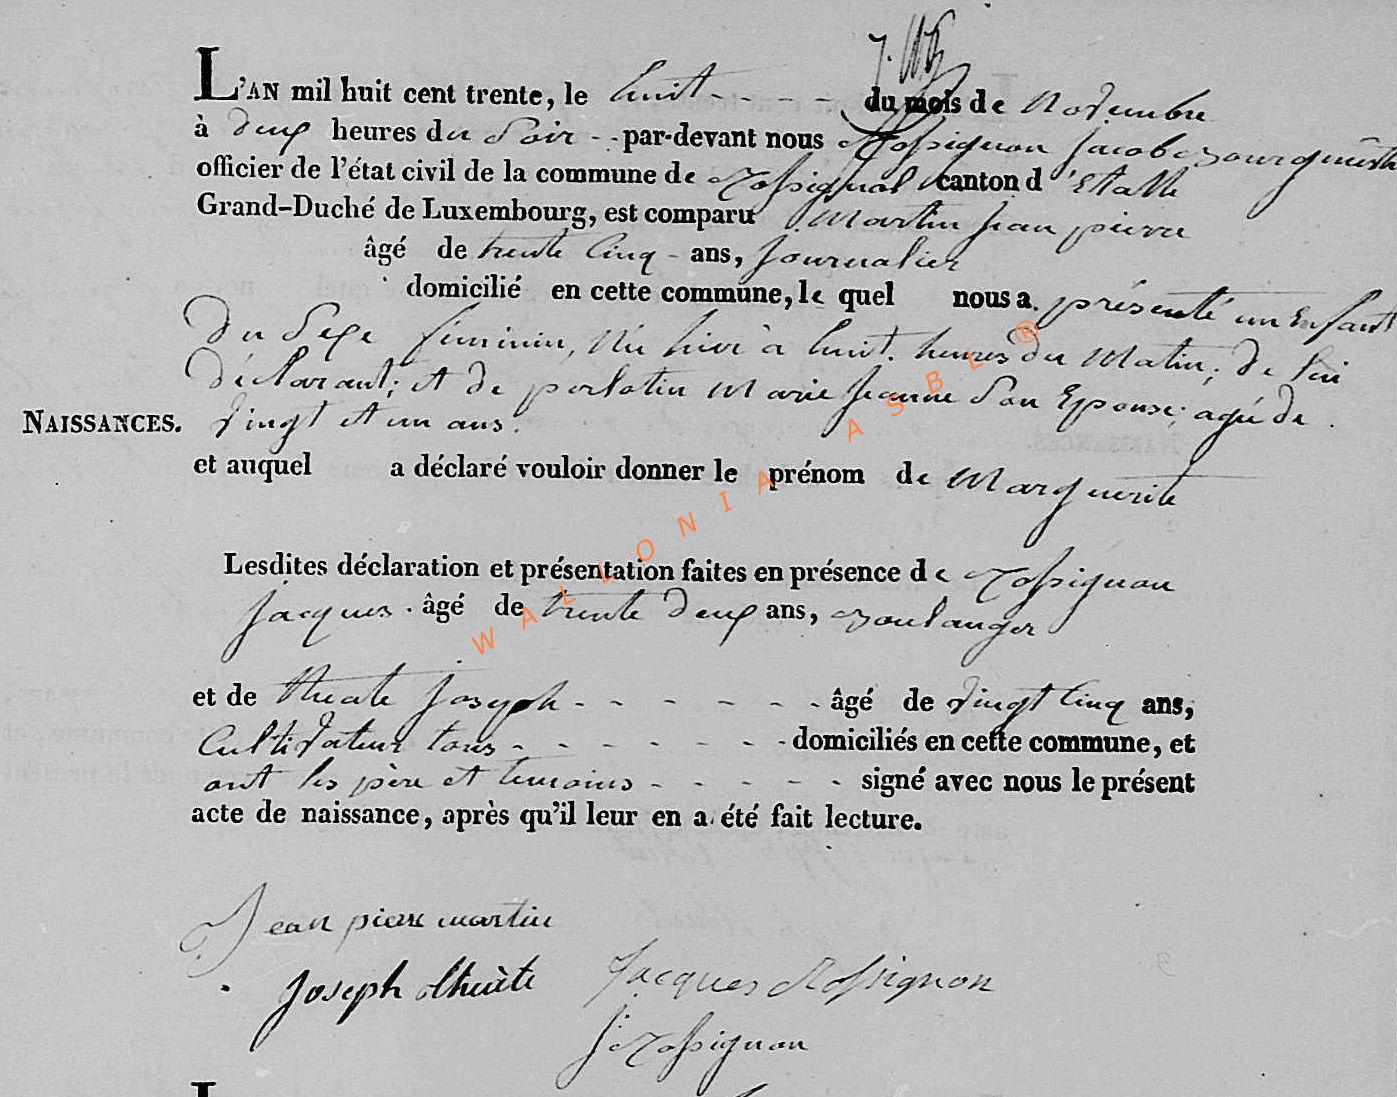 L'AN mil huit cent trente, le huit - - - - du mois de Novembre
à deux heures du Soir - - par-devant nous Rossignon Jacob Bourguemestre
officier de l'état civil de la commune de Rossignol canton d'Etalle
Grand-Duché de Luxembourg, est comparu Martin Jean pierre
âgé de trente Cinq - ans, Journalier
domicilié en cette commune, le quel nous a présenté un Enfant
du Sexe féminin, Née hier à huit heures du Matin, de lui
déclarant; et de Marie Jeanne Son Epouse; agée de
NAISSANCES. Vingt et un ans.
et auquel a déclaré vouloir donner le prénom de Marguerite
Lesdites déclaration et présentation faites en présence de Rossignon
Jacques. âgé de trente deux ans, Boulanger
et de Joseph - - - - - - - âgé de vingt Cinq ans,
Cultivateur tous - - - - - - - domiciliés en cette commune, et
ont les père et temoins - - - - - signé avec nous le présent
acte de naissance, après qu'il leur en a été fait lecture.
Jean piere martin
Joseph Jacques Rossignon
J Rossignon
WALLONIA ASBL ®